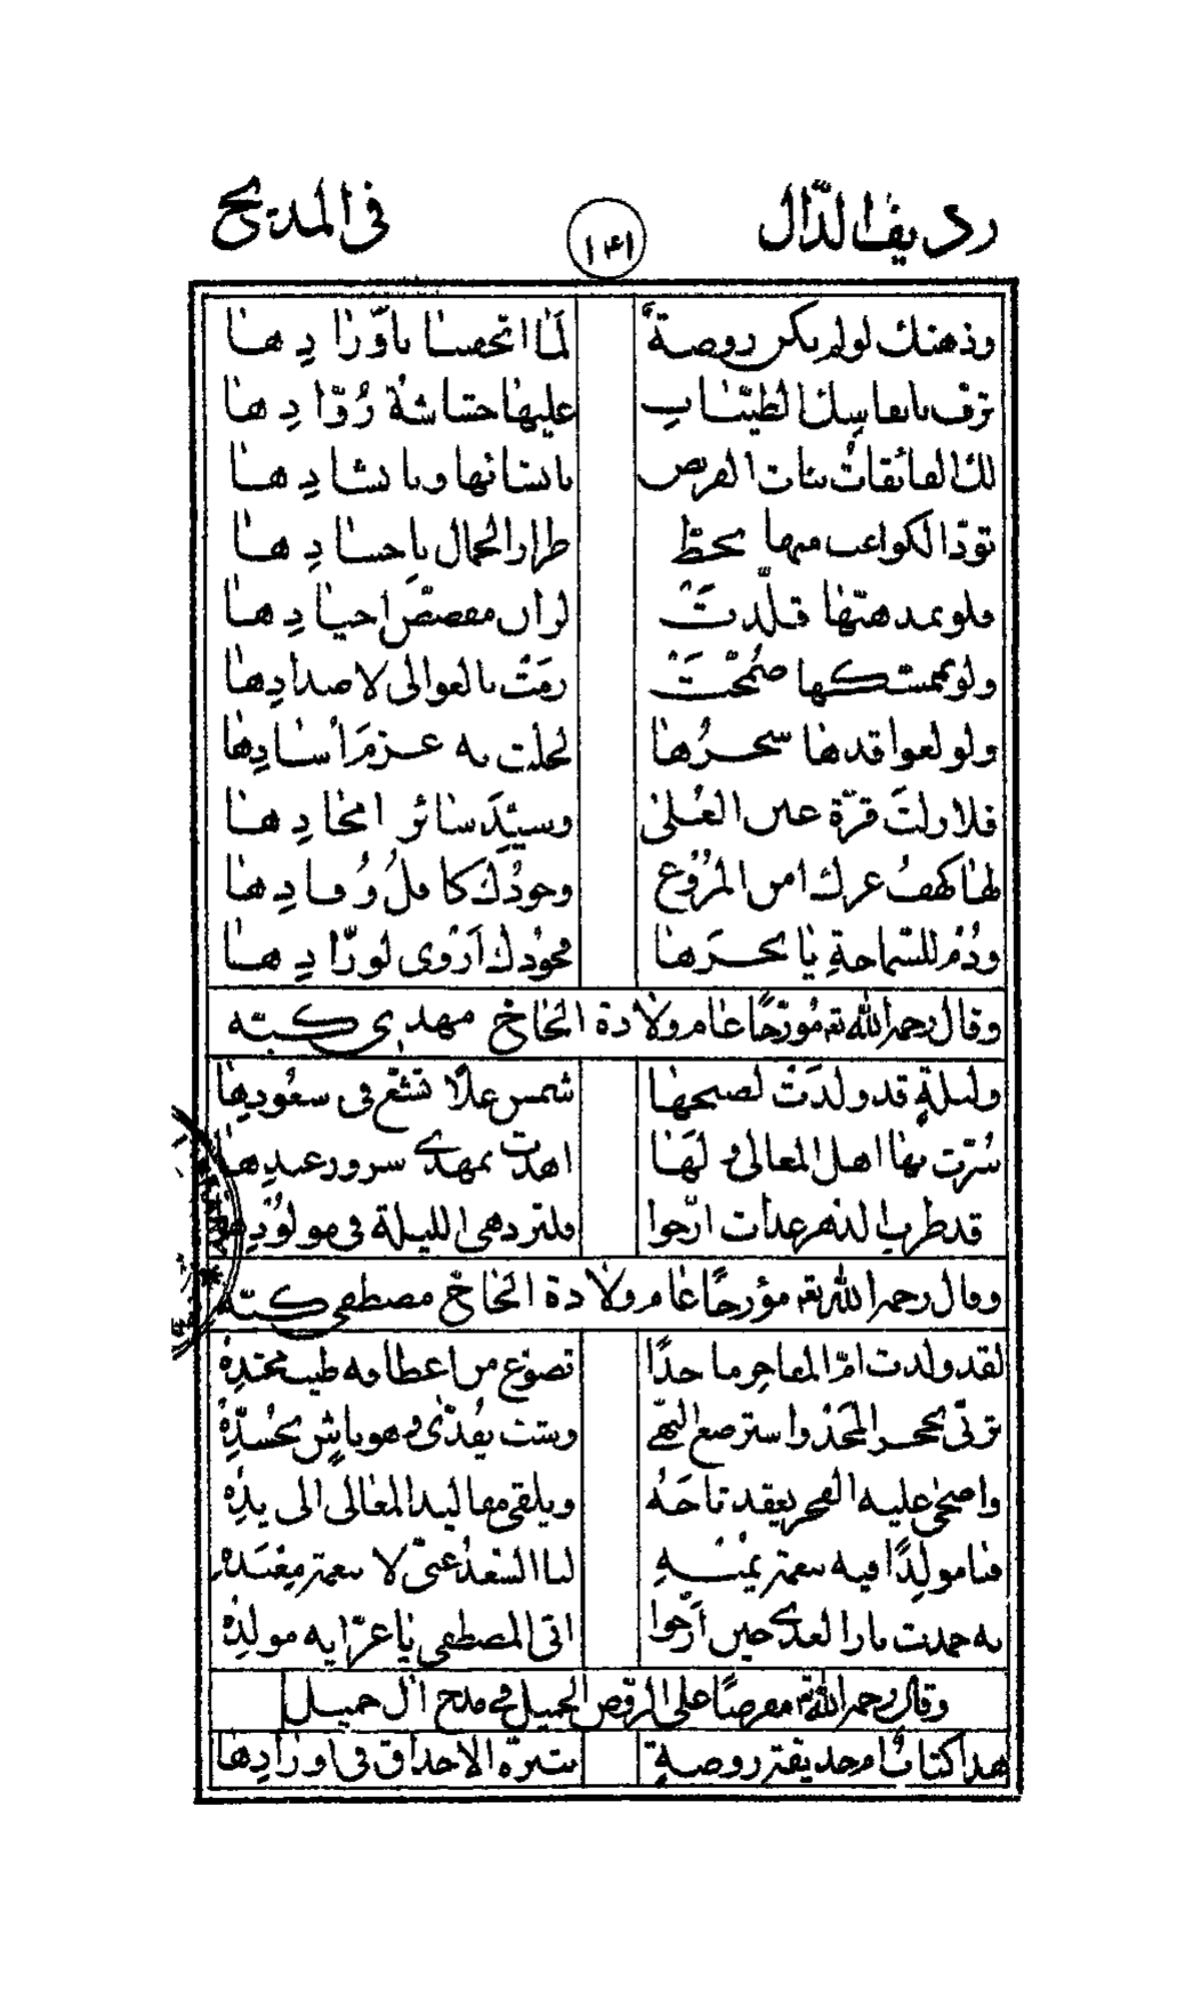 رديف الدّال ١٤١ في المديح
وذهنك لو لم يكن روضةً لما اتحفنا باورادها
ترف بانفاسك الطيّبات عليها حشاشة روّادها
لك الفائقات بنات القريض بانشائها وبانشادها
تودّ الكواعب منها بحظّ طراز الجمال باجسادها
فلو بمدهنّها قلّدت لزان مفصّص اجيادها
ولو بممسّكها ضمّخت رمت بالغوالي لاصدادها
ولو لعواقدها سحرها لحلّت به عزم آسادها
فلا زلت قرّة عين العلى وسيّد سائر امجادها
لها كهف عزك امن المروع وجودك كافل وفادها
ودم للسّماحة يا بحرها فجودك اروى لورّادها
وقال رحمه الله تع مؤرّخًا عام ولادة الحاج مهدي كبّه
وليلةٍ قد ولدت لصبحها شمس علًا تشعّ في سعودها
سُرّت بها اهل المعالي ولها اهدت بمهدي سرور عيدها
قد طرب الدهر غداة ارّخوا فلتزدهي الليلة في مولودها
وقال رحمه الله تع مؤرخًا عام ولادة الحاج مصطفى كبّه
لقد ولدت امّ المفاخر ماجدًا تضوّع من اعطافه طيب محتده
تربّى بحجر المجد واسترضع النّهى وشبّ يفدّى وهو ناشٍ بحسّده
واضحى عليه الفخر يعقد تاجه ويلقي مقاليد المعالي الى يده
فيا مولدًا فيه نعمتم بيمنه لنا السّعد غنّى لا نعمتم بمغبده
به خمدت نار العدى حين ارّخوا اتى المصطفى يا عزّ ايه مولده
وقال رحمه الله تع مقرضًا على الروض الجميل في مدح آل جميل
هذا كتابٌ ام حديقة روضةٍ تتنزّه الاحداق في اورادها